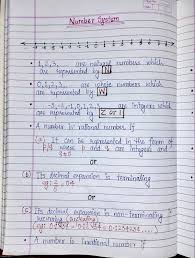 Number System
• 1, 2, 3, are natural numbers which
are represented by N
• 0, 1, 2, 3, are whole numbers which
are represented by W
-3, -2, -1, 0, 1, 2, are integers which
are represented by Z or I
• A number is rational number if
(a) It can be represented in the form of
p/q where p and q are integers and
q≠0
or
(b) Its decimal expansion is terminating
or
(c) Its decimal expansion is non-terminating
recurring
• A number is irrational number if